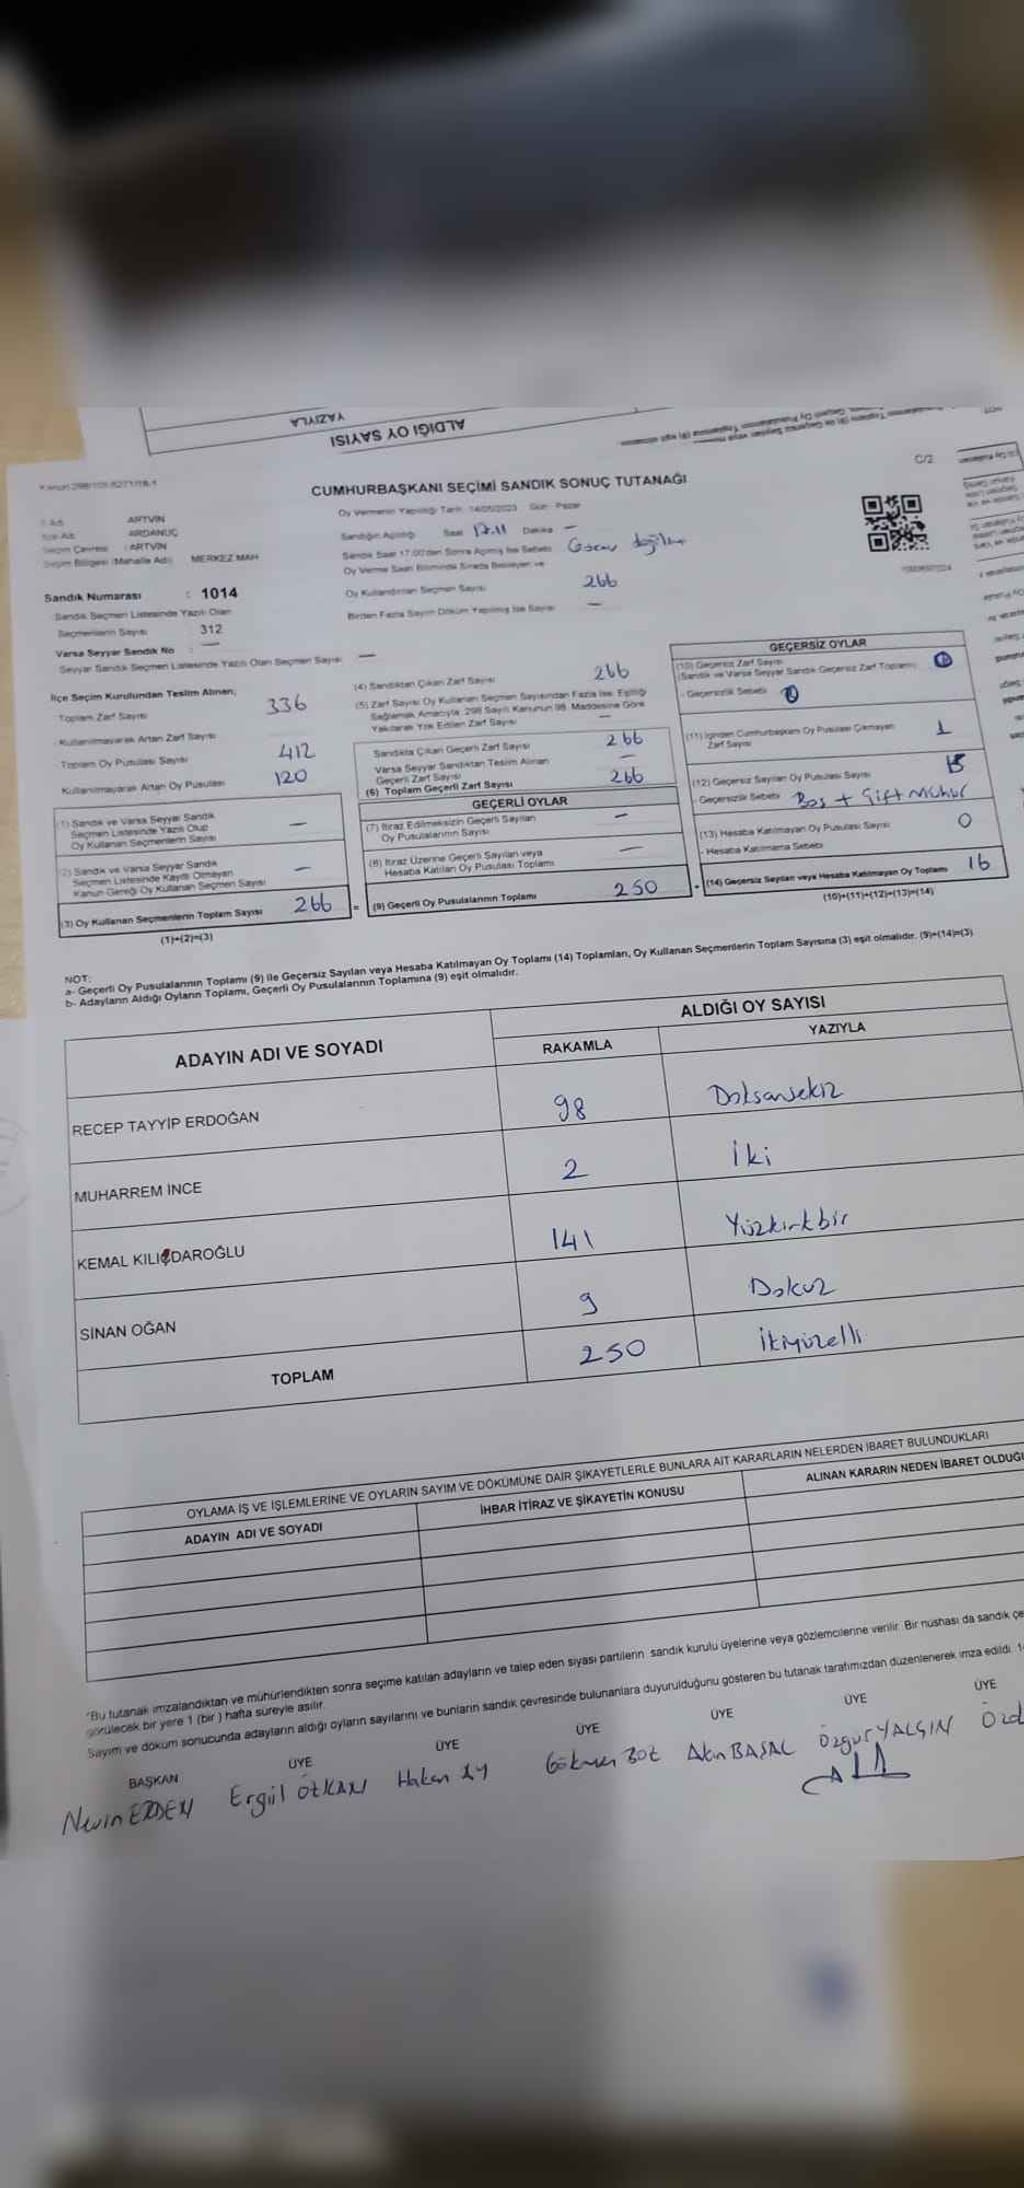 YAZIYLA
ALDIĞI OY SAYISI
C/2
CUMHURBAŞKANI SEÇİMİ SANDIK SONUÇ TUTANAĞI
Oy Vermenin Yapıldığı Tarih: 14/05/2023 Gün: Pazar
ARTVİN
ARDANUÇ
Seçim Çevresi : ARTVİN
Seçim Bölgesi (Mahalle Adı) MERKEZ MAH
Sandığın Açıldığı Saat 17.11 Dakika -
Sandık Saat 17.00'den Sonra Açılmış İse Sebebi
Oy Verme Saati Bitiminde Sırada Bekleyen ve
Oy Kullandırılan Seçmen Sayısı 266
Birden Fazla Sayım Döküm Yapılmış İse Sayısı —
Sandık Numarası : 1014
Sandık Seçmen Listesinde Yazılı Olan
Seçmenlerin Sayısı 312
Varsa Seyyar Sandık No : —
Seyyar Sandık Seçmen Listesinde Yazılı Olan Seçmen Sayısı —
İlçe Seçim Kurulundan Teslim Alınan;
Toplam Zarf Sayısı 336
Kullanılmayarak Artan Zarf Sayısı
Toplam Oy Pusulası Sayısı 412
Kullanılmayarak Artan Oy Pusulası 120
(1) Sandık ve Varsa Seyyar Sandık
Seçmen Listesinde Yazılı Olup
Oy Kullanan Seçmenlerin Sayısı —
(2) Sandık ve Varsa Seyyar Sandık
Seçmen Listesinde Kayıtlı Olmayan
Kanun Gereği Oy Kullanan Seçmen Sayısı —
(3) Oy Kullanan Seçmenlerin Toplam Sayısı 266
(1)+(2)=(3)
(4) Sandıktan Çıkan Zarf Sayısı 266
(5) Zarf Sayısı Oy Kullanan Seçmen Sayısından Fazla İse, Eşitliği
Sağlamak Amacıyla, 298 Sayılı Kanunun 98. Maddesine Göre
Yakılarak Yok Edilen Zarf Sayısı —
Sandıkta Çıkan Geçerli Zarf Sayısı 266
Varsa Seyyar Sandıktan Teslim Alınan
Geçerli Zarf Sayısı —
(6) Toplam Geçerli Zarf Sayısı 266
GEÇERLİ OYLAR
(7) İtiraz Edilmeksizin Geçerli Sayılan
Oy Pusulalarının Sayısı —
(8) İtiraz Üzerine Geçerli Sayılan veya
Hesaba Katılan Oy Pusulası Toplamı —
= (9) Geçerli Oy Pusulalarının Toplamı 250
GEÇERSİZ OYLAR
(10) Geçersiz Zarf Sayısı
(Sandık ve Varsa Seyyar Sandık Geçersiz Zarf Toplamı)
- Geçersizlik Sebebi
(11) İçinden Cumhurbaşkanı Oy Pusulası Çıkmayan
Zarf Sayısı 1
(12) Geçersiz Sayılan Oy Pusulası Sayısı 15
- Geçersizlik Sebebi Boş + Çift Mühür
(13) Hesaba Katılmayan Oy Pusulası Sayısı 0
- Hesaba Katılmama Sebebi
+ (14) Geçersiz Sayılan veya Hesaba Katılmayan Oy Toplamı 16
(10)+(11)+(12)+(13)=(14)
NOT:
a- Geçerli Oy Pusulalarının Toplamı (9) ile Geçersiz Sayılan veya Hesaba Katılmayan Oy Toplamı (14) Toplamları, Oy Kullanan Seçmenlerin Toplam Sayısına (3) eşit olmalıdır. (9)+(14)=(3)
b- Adayların Aldığı Oyların Toplamı, Geçerli Oy Pusulalarının Toplamına (9) eşit olmalıdır.
ADAYIN ADI VE SOYADI ALDIĞI OY SAYISI
RAKAMLA YAZIYLA
RECEP TAYYİP ERDOĞAN 98 Doksansekiz
MUHARREM İNCE 2 İki
KEMAL KILIÇDAROĞLU 141 Yüzkırkbir
SİNAN OĞAN 9 Dokuz
TOPLAM 250 İkiyüzelli
OYLAMA İŞ VE İŞLEMLERİNE VE OYLARIN SAYIM VE DÖKÜMÜNE DAİR ŞİKAYETLERLE BUNLARA AİT KARARLARIN NELERDEN İBARET BULUNDUKLARI
ADAYIN ADI VE SOYADI İHBAR İTİRAZ VE ŞİKAYETİN KONUSU ALINAN KARARIN NEDEN İBARET OLDUĞU
"Bu tutanak imzalandıktan ve mühürlendikten sonra seçime katılan adayların ve talep eden siyasi partilerin sandık kurulu üyelerine veya gözlemcilerine verilir. Bir nüshası da sandık çe
görülecek bir yere 1 (bir) hafta süreyle asılır.
Sayım ve döküm sonucunda adayların aldığı oyların sayılarını ve bunların sandık çevresinde bulunanlara duyurulduğunu gösteren bu tutanak tarafımızdan düzenlenerek imza edildi.
BAŞKAN ÜYE ÜYE ÜYE ÜYE ÜYE ÜYE
Nevin ERDEM Ergül ÖZKAN Hakan AY Gökmen BOZ Akın BAŞAL Özgür YALÇIN Özd